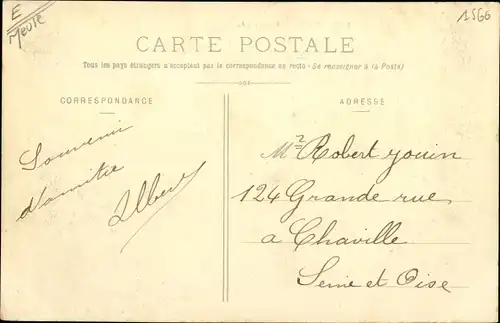 E
Meuse
1566
CARTE POSTALE
Tous les pays étrangers n'acceptent pas la correspondance au recto - Se renseigner à la Poste)
CORRESPONDANCE
ADRESSE
Souvenir
d'amitie
Albert
Mr Robert Jouin
124 Grande rue
a Chaville
Seine et Oise